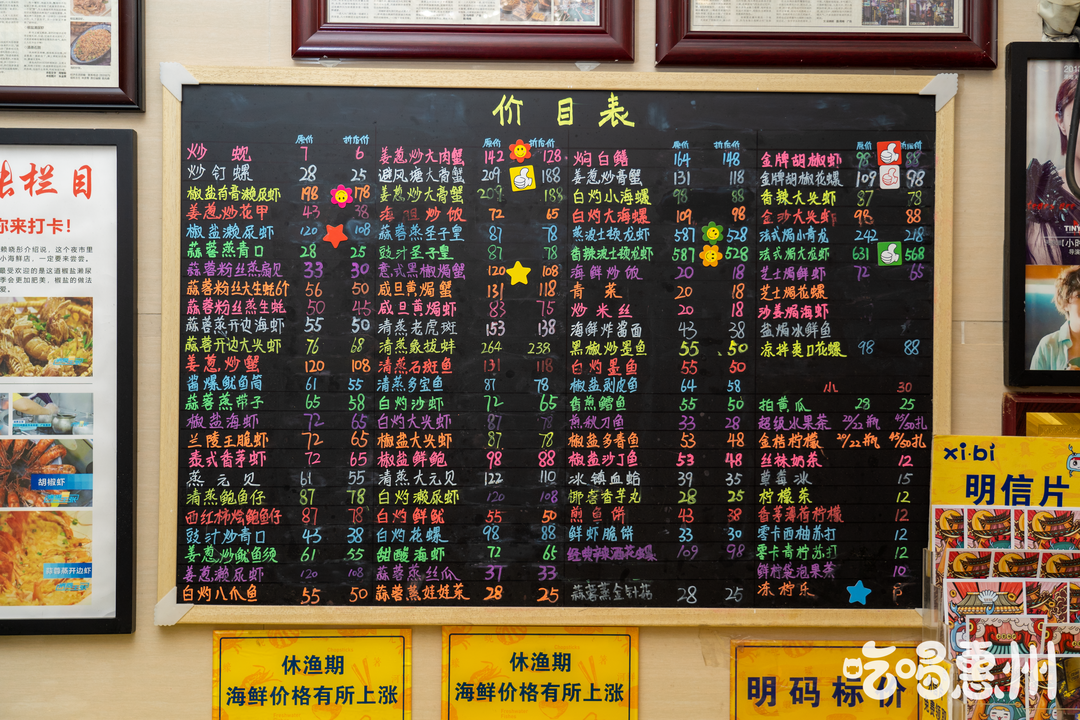 价目表
原价 折后价
炒蚬 7 6
炒钉螺 28 25
椒盐有膏濑尿虾 198 178
姜葱炒花甲 43 38
椒盐濑尿虾 120 108
蒜蓉蒸青口 28 25
蒜蓉粉丝蒸扇贝 33 30
蒜蓉粉丝大生蚝6个 56 50
蒜蓉粉丝蒸生蚝 50 45
蒜蓉蒸开边海虾 55 50
蒜蓉蒸开边大头虾 76 68
姜葱炒蟹 120 108
酱爆鱿鱼筒 61 55
蒜蓉蒸带子 65 58
椒盐海虾 72 65
兰陵王脆虾 72 65
泰式香茅虾 72 65
蒸元贝 61 55
清蒸鲍鱼仔 87 78
西红柿焖鲍鱼仔 87 78
豉汁炒青口 43 38
姜葱炒鱿鱼须 61 55
姜葱濑尿虾 120 108
白灼八爪鱼 55 50
原价 折后价
姜葱炒大肉蟹 142 128
避风塘大膏蟹 209 188
姜葱炒大膏蟹 209 188
海胆炒饭 72 65
蒜蓉蒸圣子皇 87 78
豉汁圣子皇 87 78
意式黑椒焗蟹 120 108
咸旦黄焗蟹 131 118
咸旦黄焗虾 83 75
清蒸老虎斑 153 138
清蒸象拔蚌 264 238
清蒸石斑鱼 131 118
清蒸多宝鱼 87 78
白灼沙虾 72 65
白灼大头虾 87 78
椒盐大头虾 87 78
椒盐鲜鲍 98 88
清蒸大元贝 122 110
白灼濑尿虾 120 108
白灼鲜鱿 55 50
白灼花螺 98 88
甜酸海虾 72 65
蒜蓉蒸丝瓜 37 33
蒜蓉蒸娃娃菜 28 25
原价 折后价
焖白鳝 164 148
姜葱炒膏蟹 131 118
白灼小海螺 98 88
白灼大海螺 109 98
蒸波士顿龙虾 587 528
香辣波士顿龙虾 587 528
海鲜炒饭 20 18
青菜 20 18
炒米丝 20 18
海鲜炸酱面 43 38
黑椒炒墨鱼 55 50
白灼墨鱼 55 50
椒盐剥皮鱼 64 58
香煎鱈鱼 55 50
煎秋刀鱼 33 28
椒盐多春鱼 53 48
椒盐沙丁鱼 53 48
冰镇血蛤 39 35
椰蓉香芋丸 28 25
煎鱼饼 43 38
鲜虾脆饼 33 30
经典辣酒花螺 109 98
蒜蓉蒸金针菇 28 25
原价 折后价
金牌胡椒虾 98 88
金牌胡椒花螺 109 98
香辣大头虾 87 78
金沙大头虾 98 88
法式焗小青龙 242 218
法式焗大龙虾 631 568
芝士焗鲜虾 72 65
芝士焗花螺
沙姜焗海虾
盐焗冰鲜鱼
凉拌爽口花螺 98 88
小 30
拍黄瓜 28 25
超级水果茶 20/22瓶 45/50扎
金桔柠檬 20/22瓶 45/50扎
丝袜奶茶 12
草莓冰 15
柠檬茶 12
香茅薄荷柠檬 12
零卡西柚苏打 12
零卡青柠苏打 12
鲜柠袋泡果茶 10
冻柠乐
栏目
你来打卡！
胡椒虾
蒜蓉开边虾
休渔期
海鲜价格有所上涨
休渔期
海鲜价格有所上涨
明码标价
xi·bi
明信片
TINY
吃喝惠州